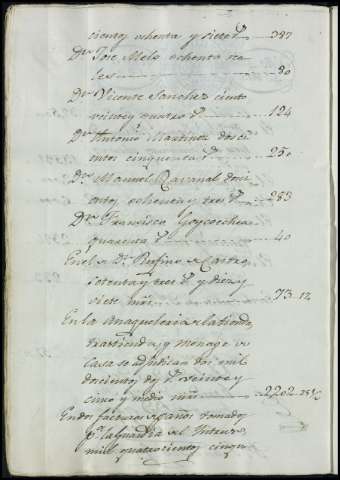 cientos ochenta y siete rs 387
Dn Jose Melo ochenta rea
les 80
Dn Vicente Sanches ciento
veinte y quatro rs 124
Dn Antonio Martinez dosci
entos cinquenta rs 250
Dn Manuel Ravanal dosci
entos, ochenta y tres rs 283
Dn Francisco Goycochea
quarenta rs 40
En el de Dn Rufino de Castro
setenta y tres rs y diez y
siete mrs 73-17
En la Anaqueleria de la tienda,
trastienda, y menage de
casa se adjudican dos mil
doscientos dos rs veinte y
cinco y medio mrs 2202-25½
En dos facturas de paños tomados
pa la guardia del Intruso
mil quatrocientos cinqu